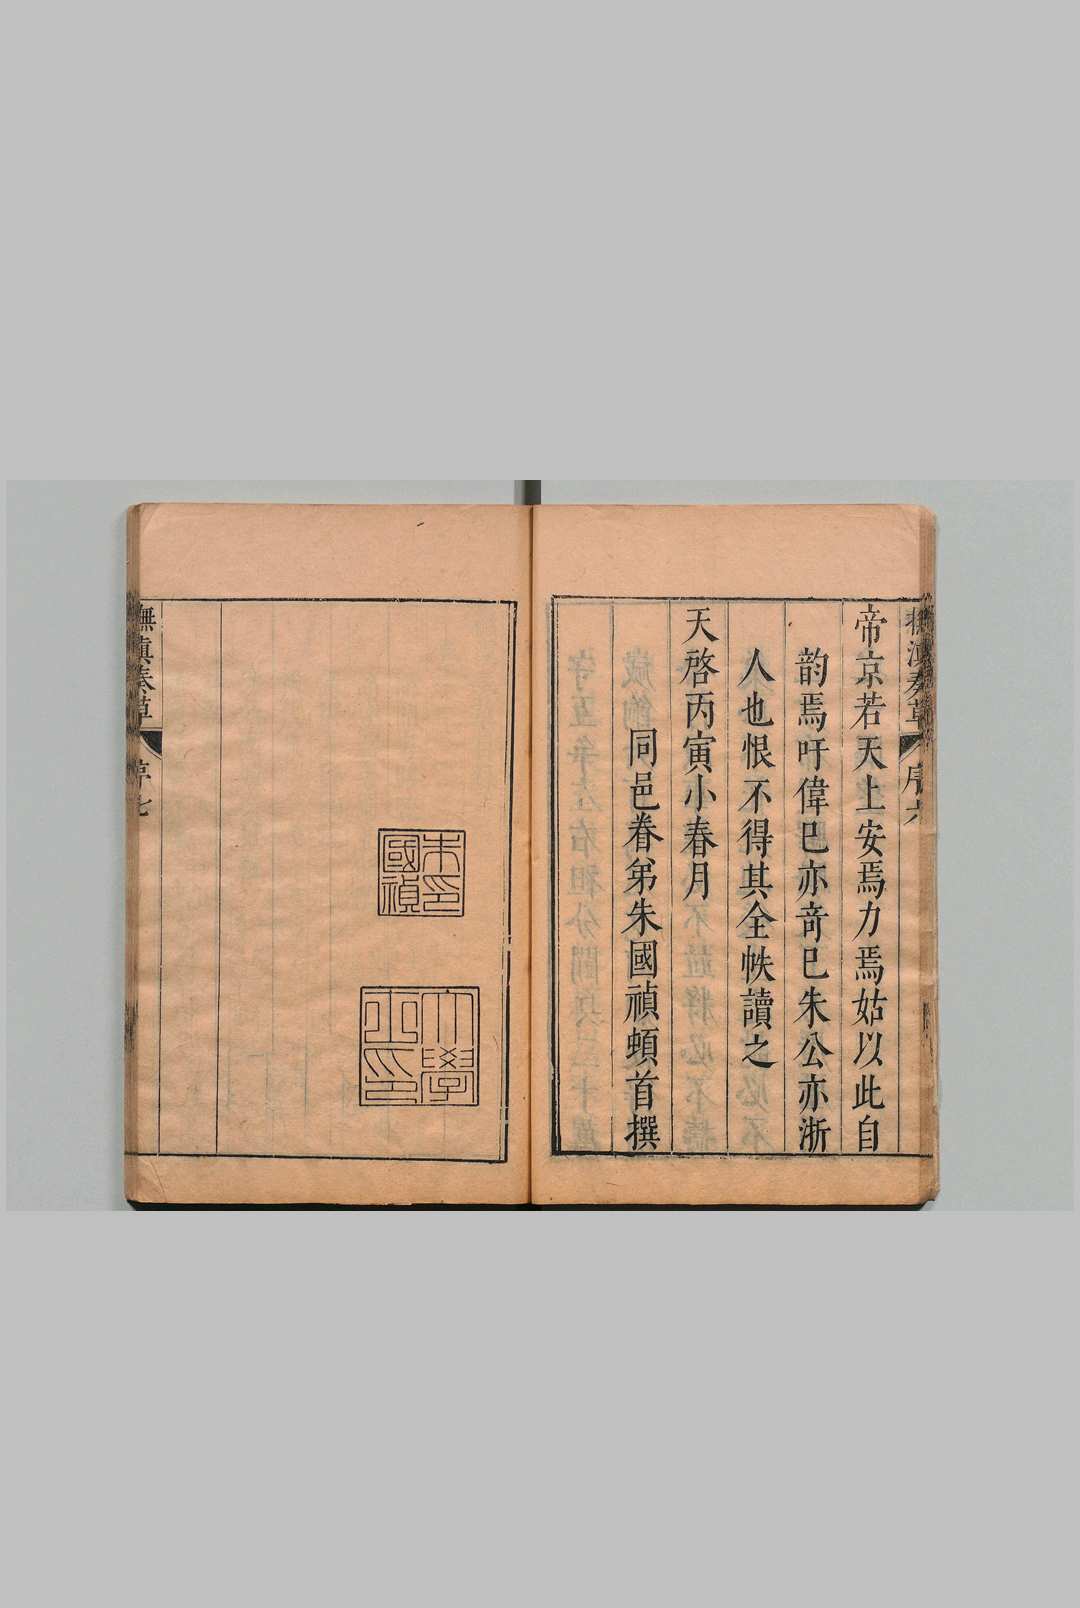 撫滇奏草
序六
帝京若天上安焉力焉姑以此自
韵焉吁偉已亦竒已朱公亦浙
人也恨不得其全帙讀之
天啓丙寅小春月
同邑眷弟朱國禎頓首撰
朱國禎印
大學士印
撫滇奏草
序七